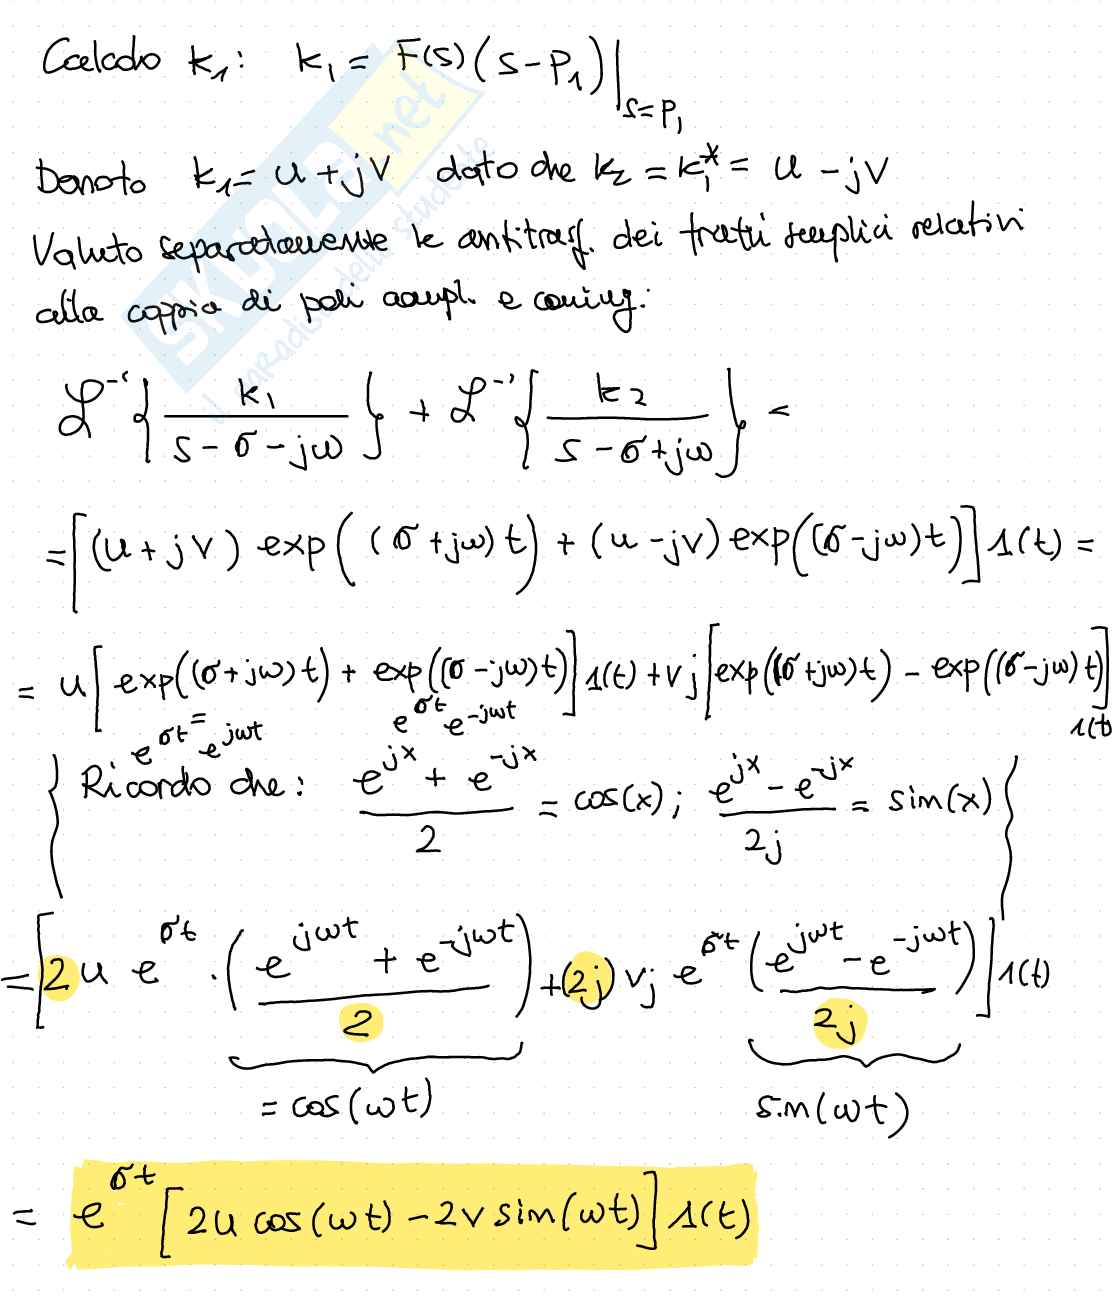 Calcolo k₁: k₁ = F(s)(s-P₁)|s=P₁
Denoto k₁ = u + jv dato che k₂ = k₁* = u - jv
Valuto separatamente le antitrasf. dei fratti semplici relativi
alla coppia di poli compl. e coniug:
ℒ⁻¹{k₁/(s-σ-jω)} + ℒ⁻¹{k₂/(s-σ+jω)} =
= [(u+jv) exp((σ+jω)t) + (u-jv) exp((σ-jω)t)] 1(t) =
= u[exp((σ+jω)t) + exp((σ-jω)t)] 1(t) + vj[exp((σ+jω)t) - exp((σ-jω)t)] 1(t)
= e^σt e^jωt e^σt e^-jωt
{ Ricordo che: (e^jx + e^-jx)/2 = cos(x); (e^jx - e^-jx)/2j = sin(x) }
= [2u e^σt · ((e^jωt + e^-jωt)/2) + (2j) vj e^σt ((e^jωt - e^-jωt)/2j)] 1(t)
= cos(ωt) sin(ωt)
= e^σt [2u cos(ωt) - 2v sin(ωt)] 1(t)
SKUOLA.net
il paradiso dello studente